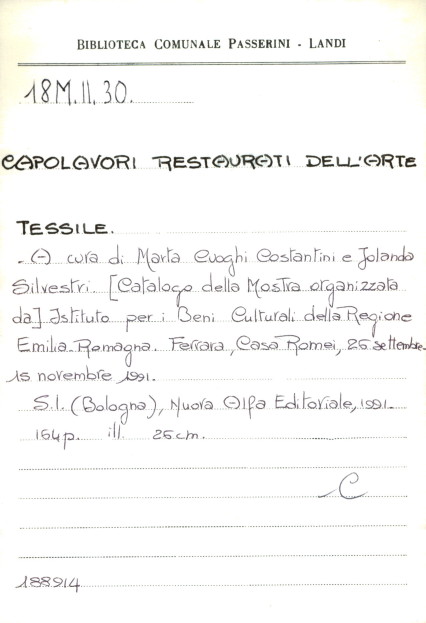 BIBLIOTECA COMUNALE PASSERINI - LANDI
18M.II.30.
CAPOLAVORI RESTAURATI DELL'ARTE
TESSILE.
- A cura di Marta Cuoghi Costantini e Jolanda
Silvestri. [Catalogo della Mostra organizzata
da] Istituto per i Beni Culturali della Regione
Emilia-Romagna. Ferrara, Casa Romei, 26 settembre-
15 novembre 1991.
S.l. (Bologna), Nuova Alfa Editoriale, 1991.
154p. ill. 25cm.
C
188914